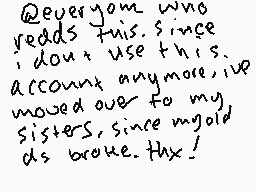 @everyom who
redds this. since
i dont use this
account anymore, ive
moved over to my
sisters, since my old
ds broke. thx!